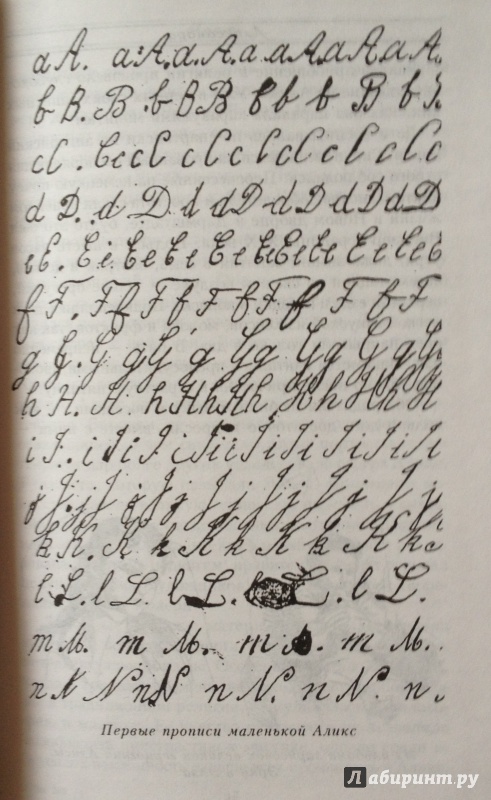 a A. a A. a. A. a a A. a A. a A.
b B. B b B B b b b B b B
c C. C c C c C c C c C c C c C
d D. d D d d D d D d D d D
e E. E e E e E e E e E e E e E e E e
f F. F f F f F f F f F f F
g G. G g G g G g G g G g G
h H. H. h H h H h H h H h H
i I. i I i I i I i i I i I i I i I i I
j J j J j J j J j J j J j J
k K. K k K k K k K k
l L. l L. l L. l L. l L.
m M. m M. m m M.
n N N n N n N. n N. n
Первые прописи маленькой Аликс
Лабиринт.ру